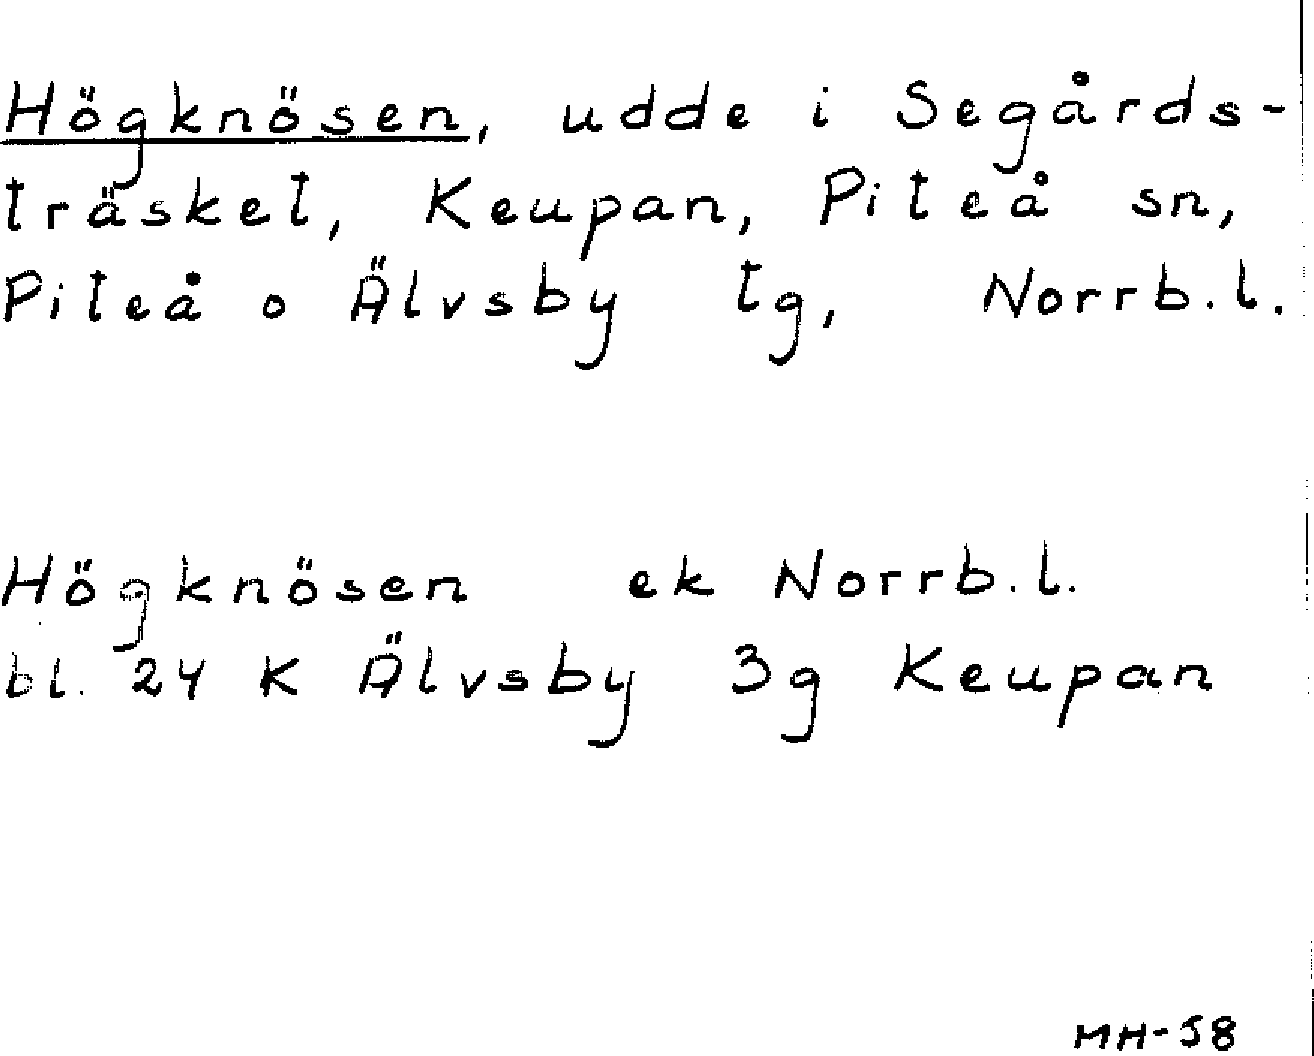 Högknösen, udde i Segårds-
träsket, Keupan, Piteå sn,
Piteå o Älvsby tg, Norrb.l.
Högknösen ek Norrb.l.
bl. 24 K Älvsby 3g Keupan
MH-58